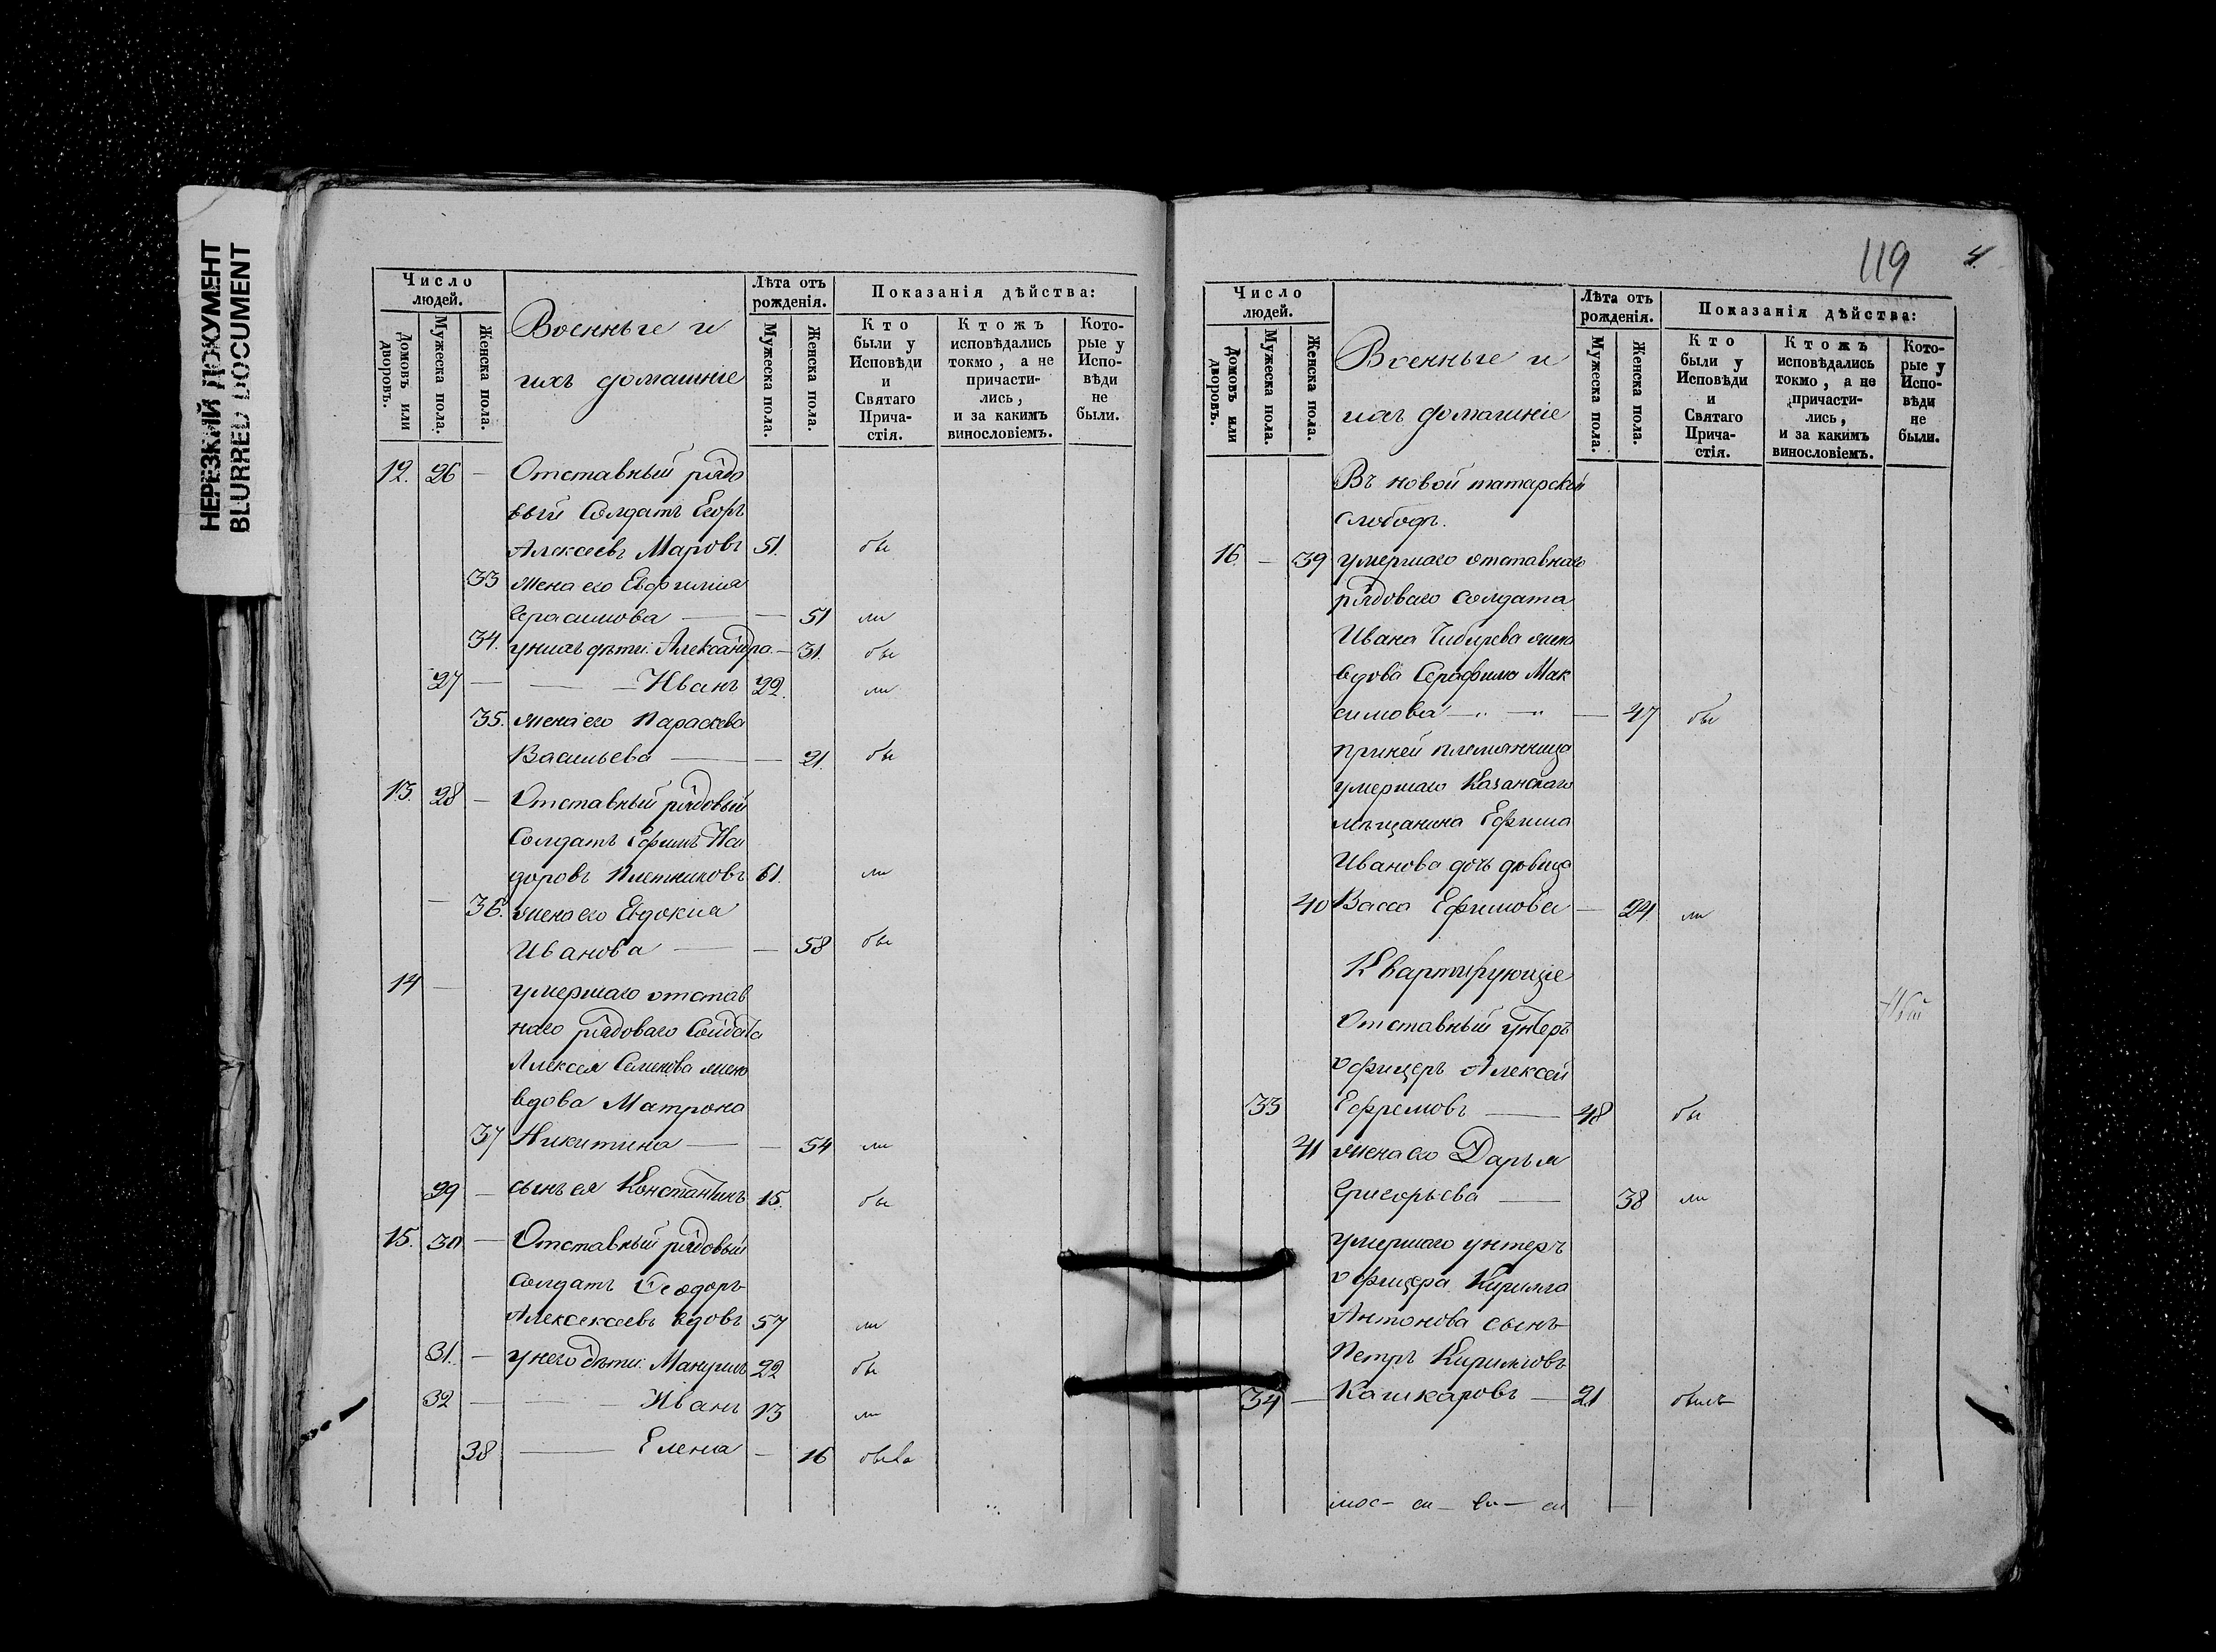 НЕРЕЗКИЙ ДОКУМЕНТ
BLURRED DOCUMENT
Число людей.
Домовъ или дворовъ.
Мужеска пола.
Женска пола.
Военные и
ихъ домашніе
Лѣта отъ рожденія.
Мужеска пола.
Женска пола.
Показанія дѣйства:
Кто были у Исповѣди и Святаго Прича-стія.
Ктожъ исповѣдались токмо, а не причасти-лись, и за какимъ винословіемъ.
Кото-рые у Испо-вѣди не были.
12. 26 — Отставный рядо
вый Солдатъ Егоръ
Алексеевъ Маровъ 51. бы
33 жена его Евфимия
Герасимова — — 51 ли
34. у нихъ дѣти: Александра — 31. бы
27 — — — Иванъ 22. ли
35. жена его Параскева
Васильева — — 21. бы
13. 28 — Отставный рядовый
Солдатъ Ефимъ Иси
доровъ Плетниковъ 61. ли
— 36. жена его Евдокиа
Иванова — — 58 бы
14 — умершаго отстав
наго рядоваго Солдата
Алексея Семенова жена
вдова Матрона
37 Никитина — — 54 ли
29 — сынъ ея Константинъ 15. бы
15. 30 — Отставный рядовый
Солдатъ Ѳеодоръ
Алексексеевъ вдовъ 57 ли
31. — у него дѣти: Мануилъ 22 бы
32 — — — Иванъ 13 ли
38 — Елена — 16 была
119 4.
Число людей.
Домовъ или дворовъ.
Мужеска пола.
Женска пола.
Военные и
ихъ домашніе
Лѣта отъ рожденія.
Мужеска пола.
Женска пола.
Показанія дѣйства:
Кто были у Исповѣди и Святаго Прича-стія.
Ктожъ исповѣдались токмо, а не причасти-лись, и за какимъ винословіемъ.
Кото-рые у Испо-вѣди не были.
Въ новой татарской
слободѣ.
16. — 39 умершаго отставнаго
рядоваго солдата
Ивана жена
вдова Серафима Мак
симова — „ — „ — 47 бы
при ней племянница
умершаго Казанскаго
мѣщанина Ефима
Иванова дочь дѣвица
40 Васса Ефимова — 24 ли
Квартирующіе
Отставный унтеръ
офицеръ Алексей
33 Ефремовъ — 48 бы
41 жена его Дарья
Григорьева — 38 ли
умершаго унтеръ
офицера Кирилла
Антонова сынъ
Петръ Кирилловъ
34 — Кашкаровъ — 21 былъ